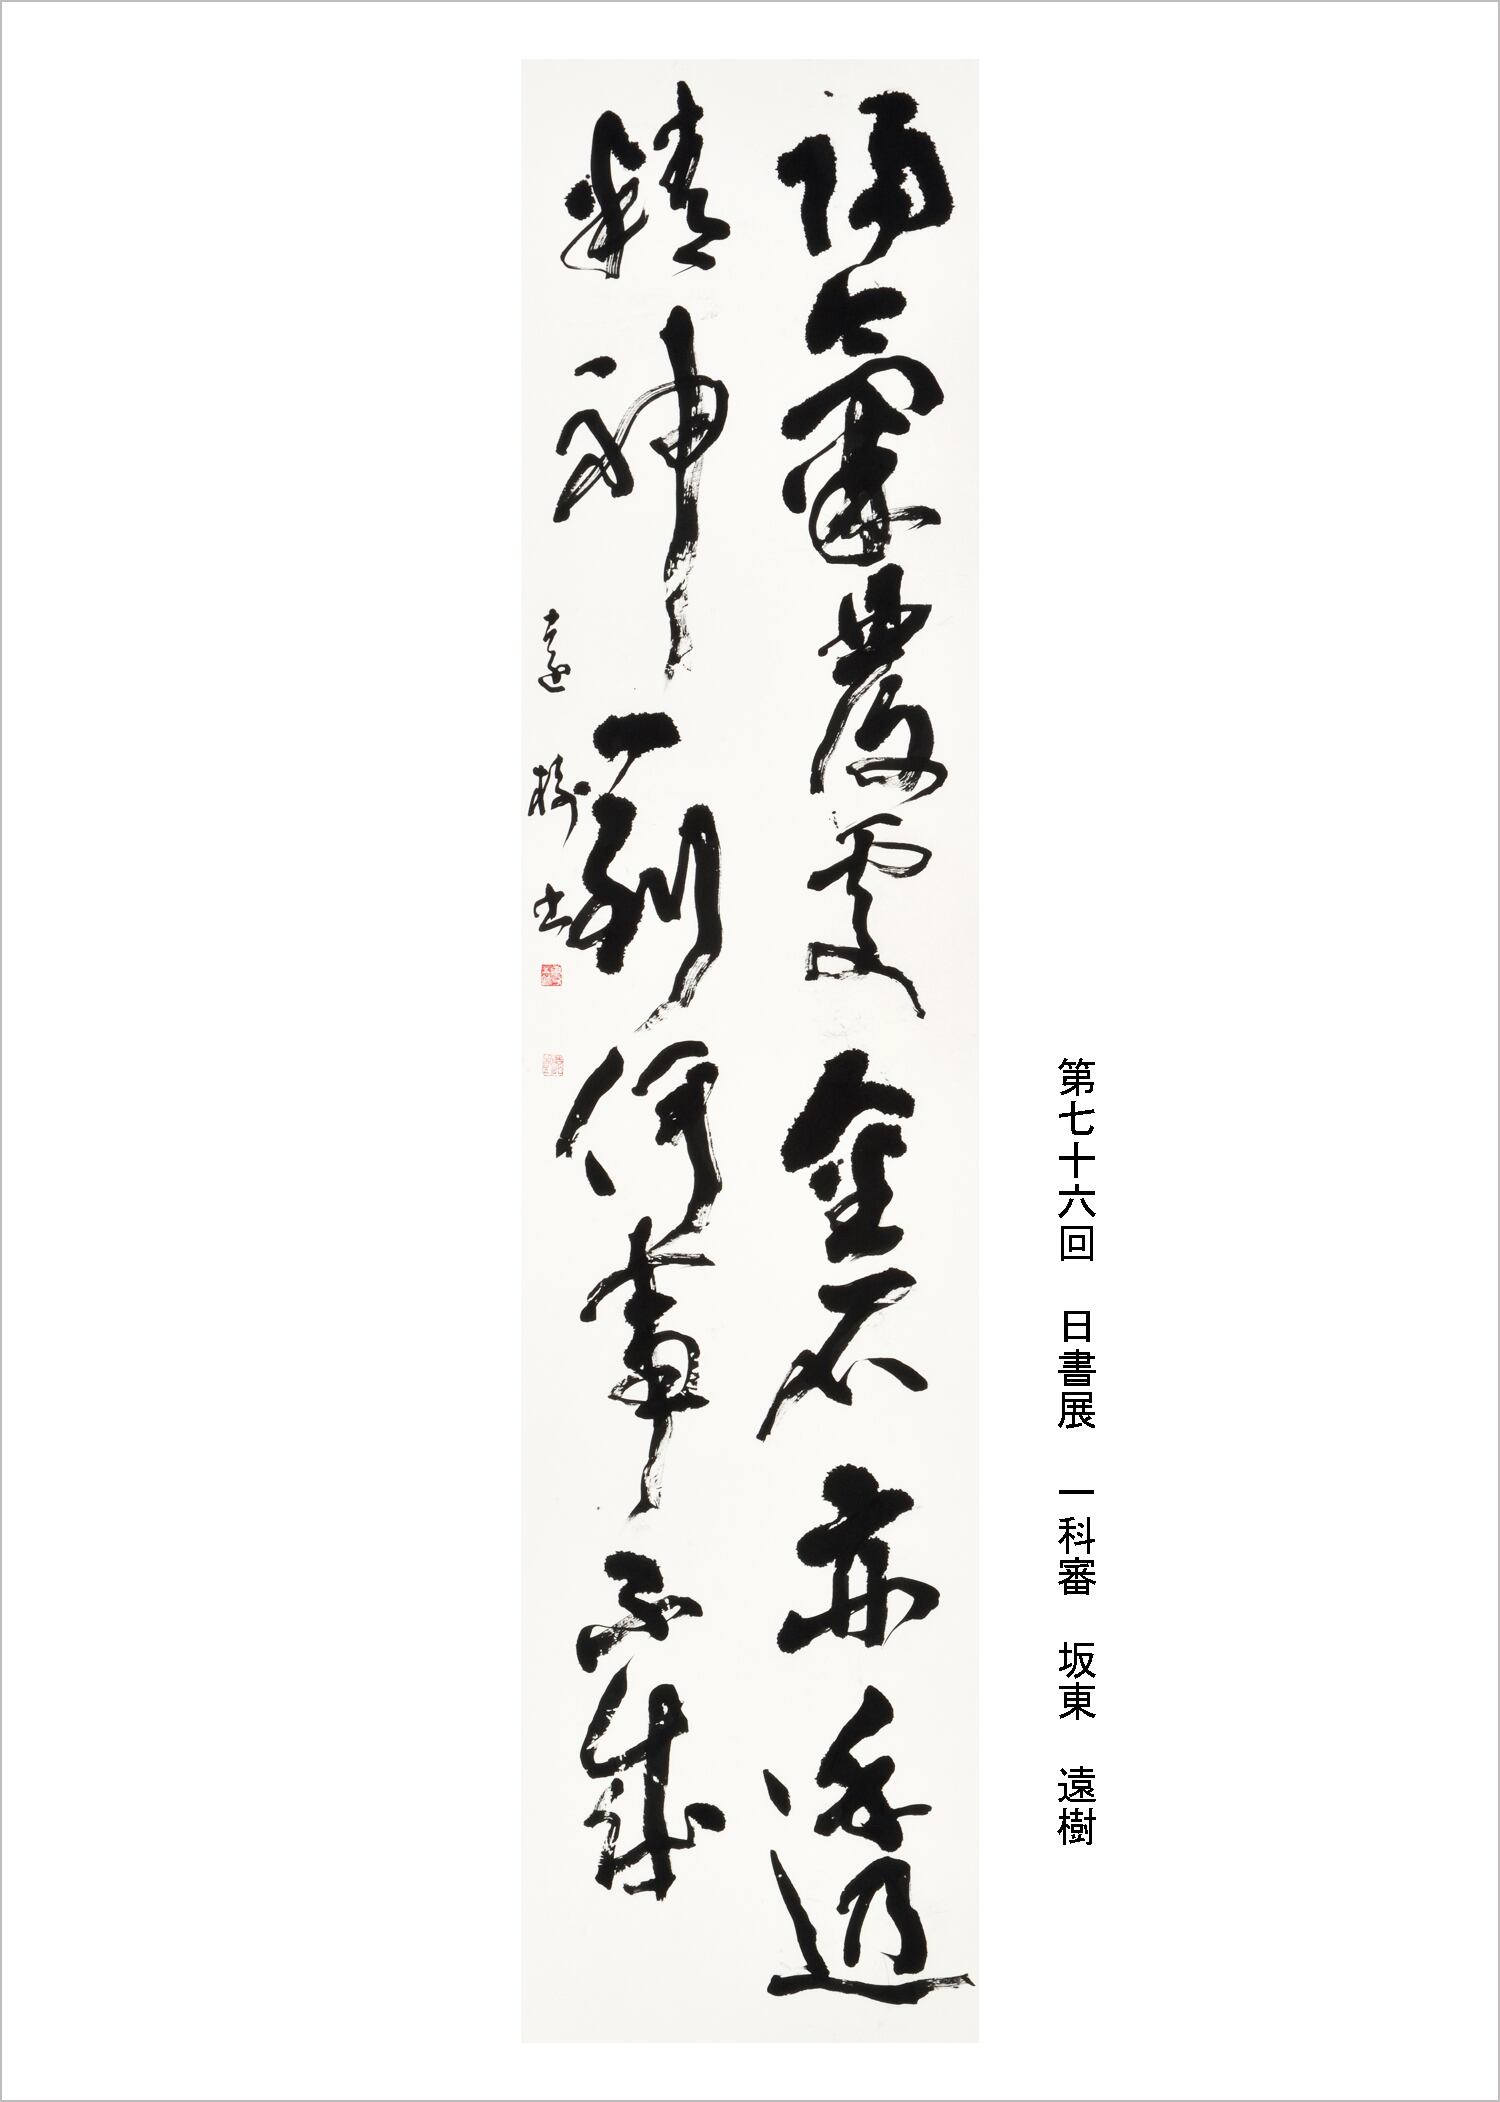 第七十六回 日書展 一科審 坂東 遠樹
陽氣發處金石亦透
精神一到何事不成
遠樹書